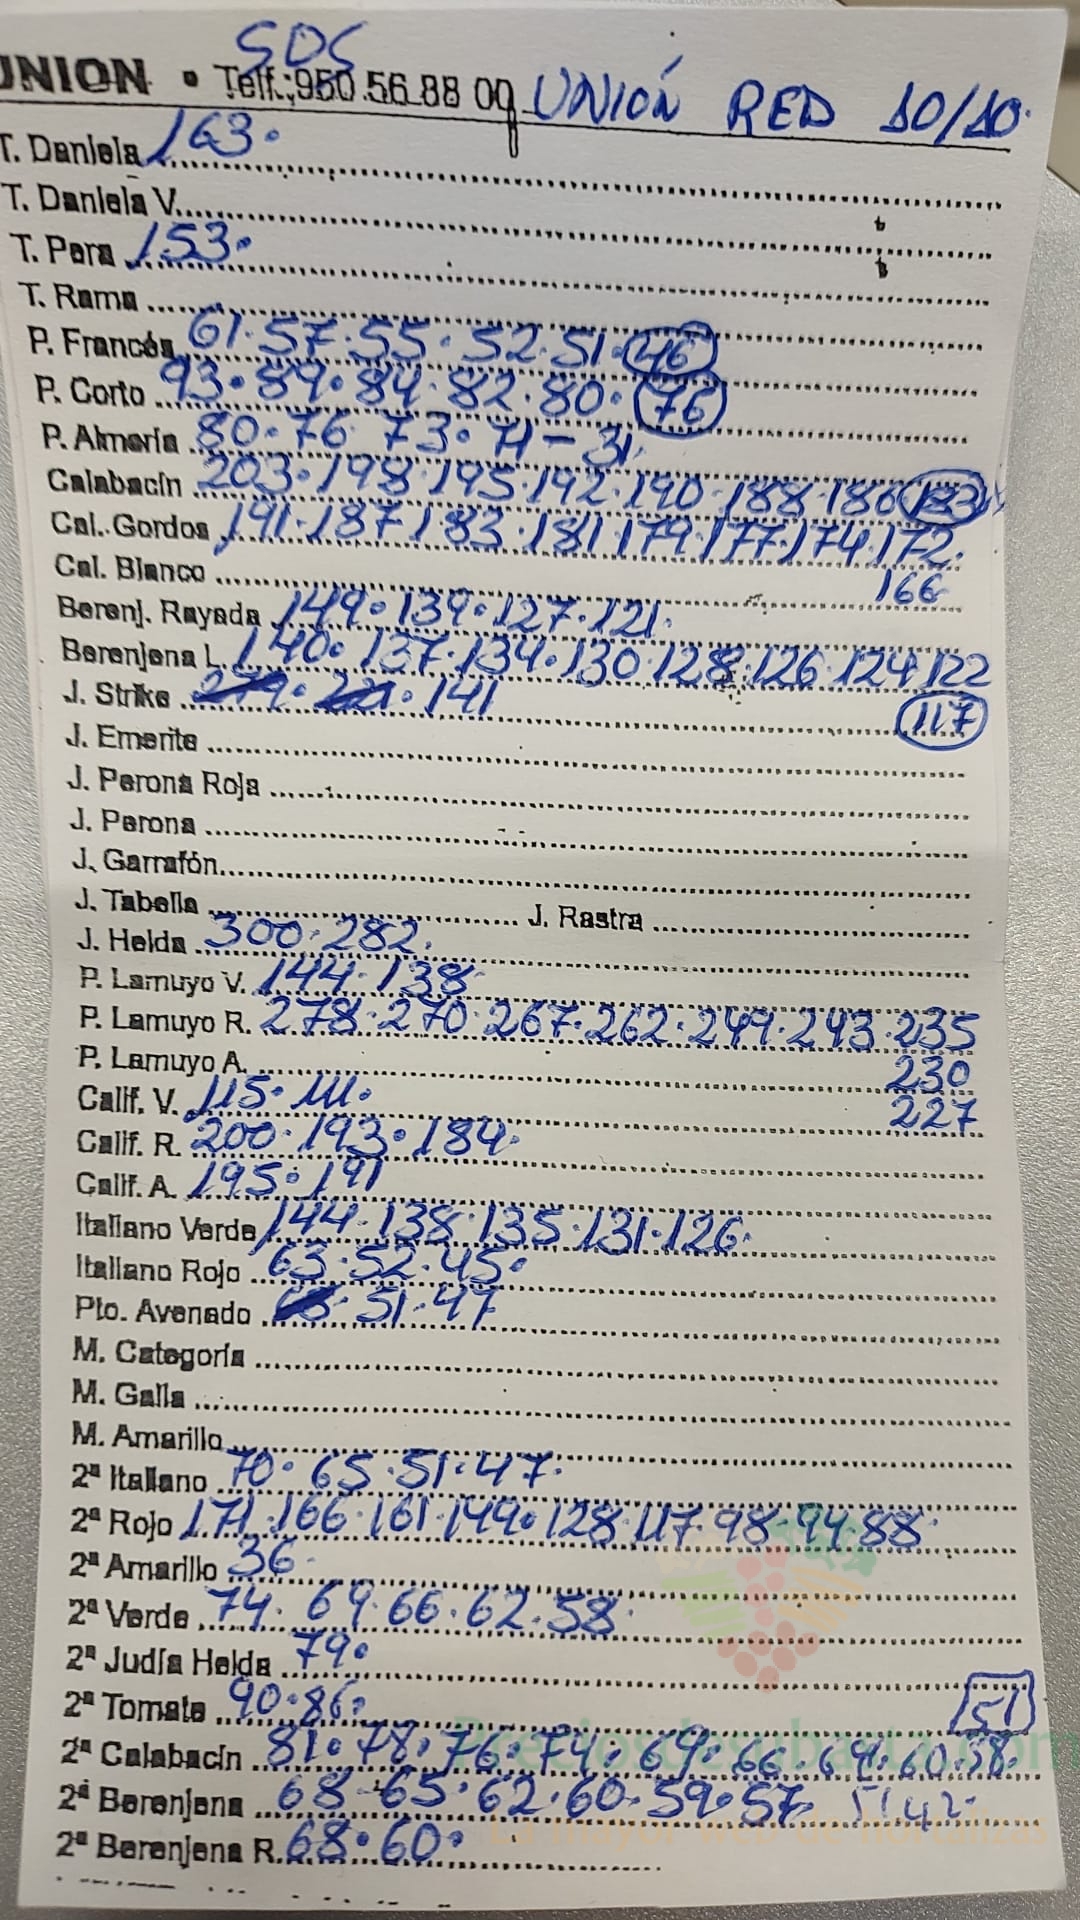 SDS
UNION • Telf.:950.56.88 09 UNIÓN RED 10/10.
T. Daniela 163.
T. Daniela V.
T. Pera 153.
T. Rama
P. Francés 61.57.55.52.51.46
P. Corto 93.89.84.82.80.76
P. Almería 80.76 73.71-31.
Calabacín 203.198.195.192.190.188.186.183
Cal. Gordos 191.187.183.181.179.177.174.172.
166
Cal. Blanco
Berenj. Rayada 149.139.127.121.
Berenjena L. 140.137.134.130.128.126.124.122
117
J. Strike 141
J. Emerite
J. Perona Roja
J. Perona
J. Garrafón
J. Tabella J. Rastra
J. Helda 300.282.
P. Lamuyo V. 144.138
P. Lamuyo R. 278.270.267.262.249.243.235
230
227
P. Lamuyo A.
Calif. V. 115.111.
Calif. R. 200.193.184.
Calif. A. 195.191
Italiano Verde 144.138.135.131.126.
Italiano Rojo 63.52.45.
Pto. Avenado 51.47
M. Categoría
M. Galia
M. Amarillo
2ª Italiano 70.65.51.47.
2ª Rojo 171.166.161.149.128.117.98.94.88
2ª Amarillo 36
2ª Verde 74.69.66.62.58
2ª Judía Helda 79.
2ª Tomate 90.86.
51
2ª Calabacín 81.78.76.74.69.66.64.60.58.
2ª Berenjena 68.65.62.60.59.57. 51.42.
2ª Berenjena R. 68.60.
La mayor web de hortalizas